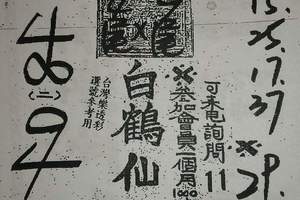 15.
25.
17.
37
※29.
可来电詢問11
※參加會員一個月1000
白鶴仙
台灣樂透彩
選號參考用
48
(二)
94